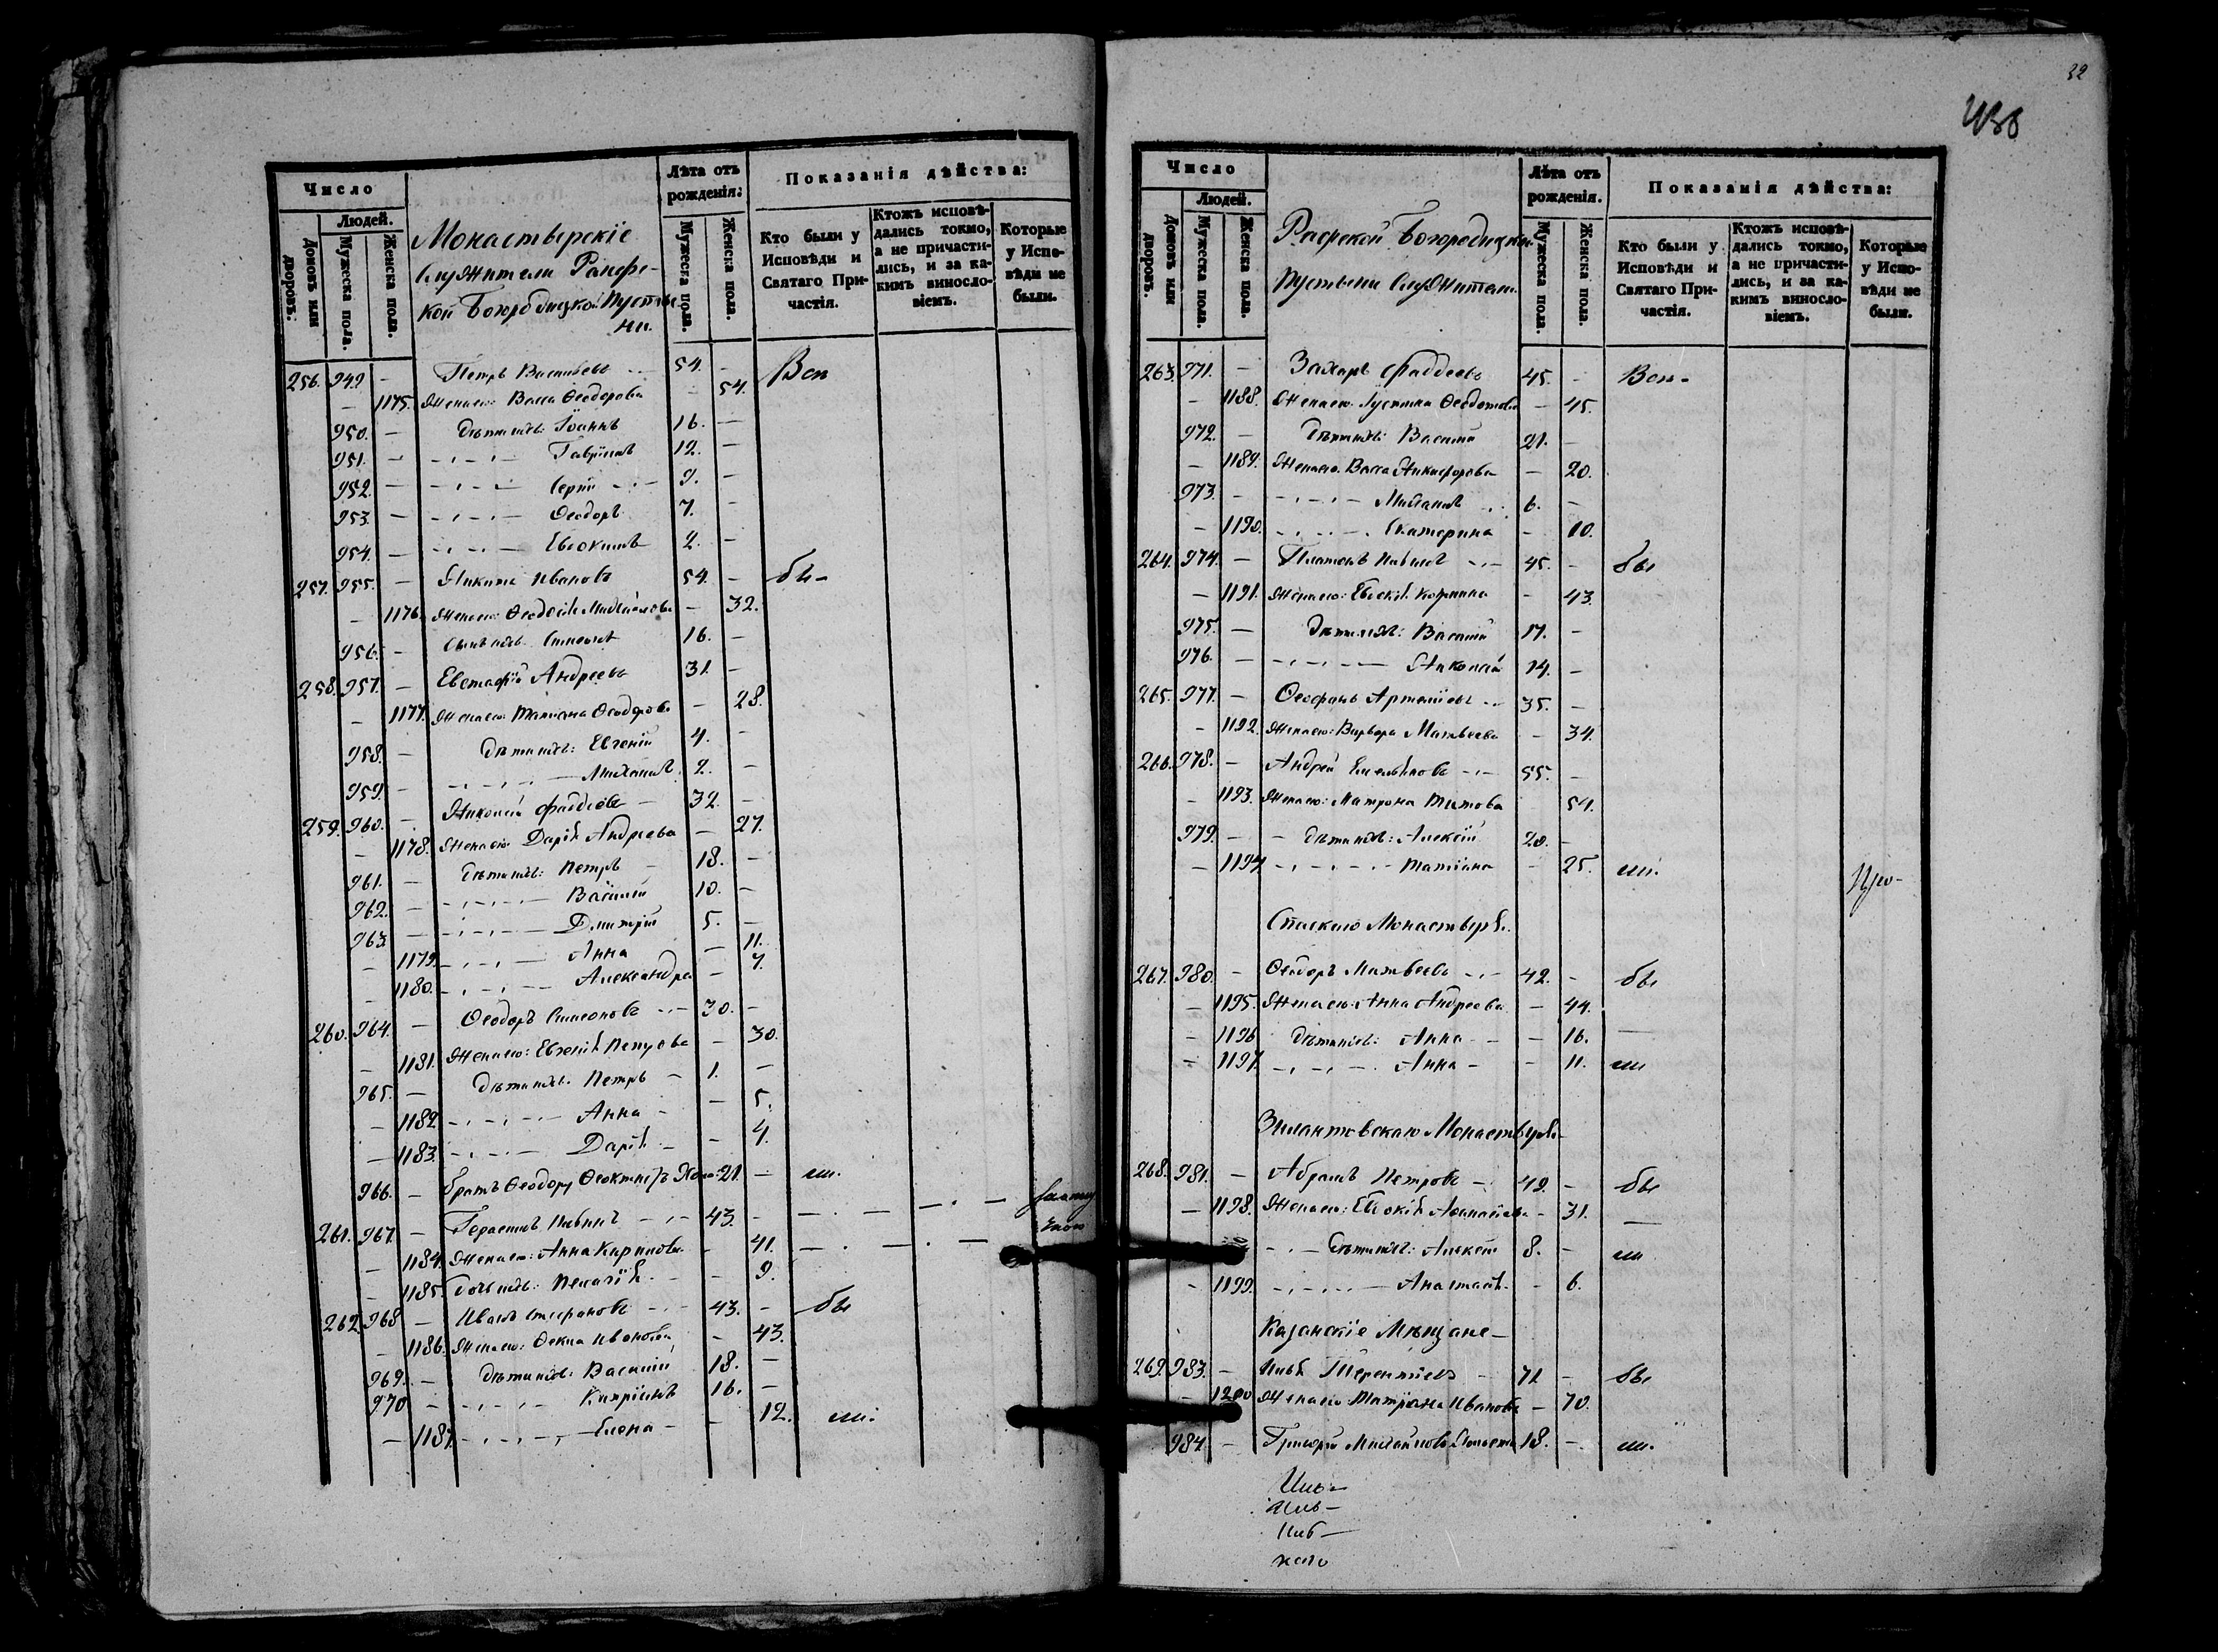 32
436
Число
Людей.
Домовъ или дворовъ.
Мужеска пола.
Женска пола.
Монастырскіе
служители Раифс-
кой Богородицкой Пусты-
ни.
Лѣта отъ рожденія:
Мужеска пола.
Женска пола.
Показанія дѣйства:
Кто были у Исповѣди и Святаго Причастія.
Ктожъ исповѣдались токмо, а не причастились, и за какимъ винословіемъ.
Которые у Исповѣди не были.
256. 949. — Петръ Васильевъ 54. —
— 1175. Жена его: Васса Ѳеодорова — 54.
950. — Дѣти ихъ: Іоаннъ 16. —
951. — Гавріилъ 12. —
952. — Сергій 9. —
953. — Ѳеодоръ 7. —
954. — Евдокимъ 2. —
257. 955. — Никита Ивановъ 54. — бы-
— 1176. Жена его: Ѳеодосія Михайлова — 32.
956. — Сынъ ихъ Симеонъ 16. —
258. 957. — Евстафій Андреевъ 31. —
— 1177. Жена его: Татіана Ѳеодорова — 28.
958. — Дѣти ихъ: Евгеній 4. —
959. — Михаилъ 2. —
259. 960. — Николай Фаддѣевъ 32. —
— 1178. Жена его Дарія Андреева — 27.
961. — Дѣти ихъ: Петръ 18. —
962. — Василій 10. —
963. — Димитрій 5. —
— 1179. Анна — 11.
— 1180. Александра — 7.
260. 964. — Ѳеодоръ Симеоновъ 30. —
— 1181. Жена его: Евгенія Петрова — 30.
965. — Дѣти ихъ: Петръ 1. —
— 1182. Анна — 5.
— 1183. Дарія — 4.
966. — Братъ Ѳеодору 21. — ли.
261. 967. — Герасимъ 43. —
— 1184. Жена его: Анна Кирилова — 41.
— 1185. Дочь ихъ: Пелагія — 9.
262. 968 — Иванъ Стефановъ 43. — бы
— 1186. Жена его: Ѳекла Иванова — 43.
969. — Дѣти ихъ: Василій 18. —
970 — Кипріянъ 16. —
— 1187. Елена — 12. ли.
Число
Людей.
Домовъ или дворовъ.
Мужеска пола.
Женска пола.
Раифской Богородицкой
Пустыни Служители.
Лѣта отъ рожденія.
Мужеска пола.
Женска пола.
Показанія дѣйства:
Кто были у Исповѣди и Святаго Причастія.
Ктожъ исповѣдались токмо, а не причастились, и за какимъ винословіемъ.
Которые у Исповѣди не были.
263. 971. — Захаръ Фаддеевъ 45. —
— 1188. Жена его Іустина Ѳеодотова — 45.
972. — Дѣти ихъ: Василій 21. —
— 1189. Жена его Васса Никифорова — 20.
973. — Михаилъ 6. —
— 1190. Екатерина — 10.
264. 974. — Платонъ 45. — бы
— 1191. Жена его: Евдокія — 43.
975. — Дѣти ихъ: Василій 17. —
976. — Николай 14. —
265. 977. — Ѳеофанъ Артеміевъ 35. —
— 1192. Жена его: Варвара Матвеева — 34.
266. 978. — Андрей Емельяновъ 55. —
— 1193. Жена его: Матрона Титова 54.
979. — Дѣти ихъ: Алексій 20. —
— 1194. Татіана — 25. ли.
Спаскаго Монастыря.
267. 980. — Ѳеодоръ Матвеевъ 42. — бы
— 1195. Жена его: Анна Андреева — 44.
— 1196 Дѣти ихъ: Анна — 16.
— 1197. Анна — 11. ли
Зилантовскаго Монастыря
268. 981. — Абрамъ Петровъ 42. — бы
— 1198. Жена его: Евдокія — 31.
— Дѣти ихъ: Алексій 8. — ли
— 1199. Анастасія — 6.
Казанскіе Мѣщане
269. 983. — Илья Терентіевъ 71 — бы
— 1200 Жена его Матрона Иванова — 70.
984. — Григорій Михайловъ 18. — ли.